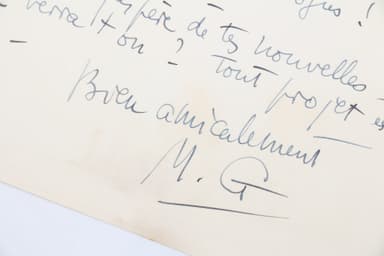 ous !
espère de tes nouvelles -
verra t on ? - tout projet es
Bien amicalement
M. G